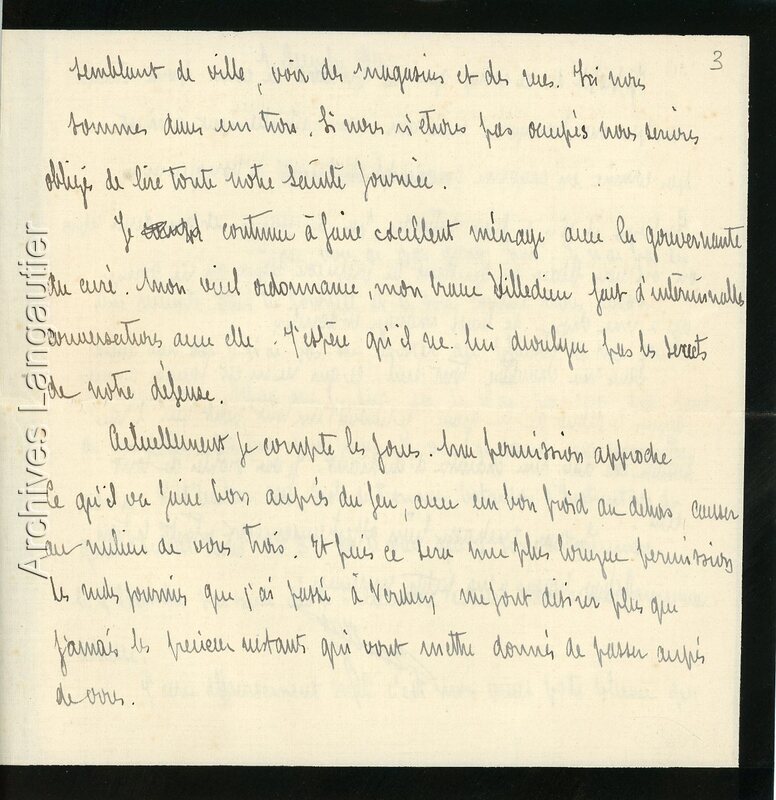 3
semblant de ville, voir des magasins et des rues. Ici nous
sommes dans un trou. Si nous n'étions pas occupés nous serions
obligés de lire toute notre sainte journée.
Je continue à faire excellent ménage avec la gouvernante
du curé. Mon vieil ordonnance, mon brave Villedieu fait d'interminables
conversations avec elle. J'espère qu'il ne lui divulgue pas les secrets
de notre défense.
Actuellement je compte les jours. Ma permission approche
Ce qu'il va faire bon auprès du feu, avec un bon froid au dehors causer
au milieu de vous trois. Et puis ce sera une plus longue permission
Les rudes journées que j'ai passé à Verdun me font désirer plus que
jamais les précieux instants qui vont m'être donnés de passer auprès
de vous.
Archives Langautier